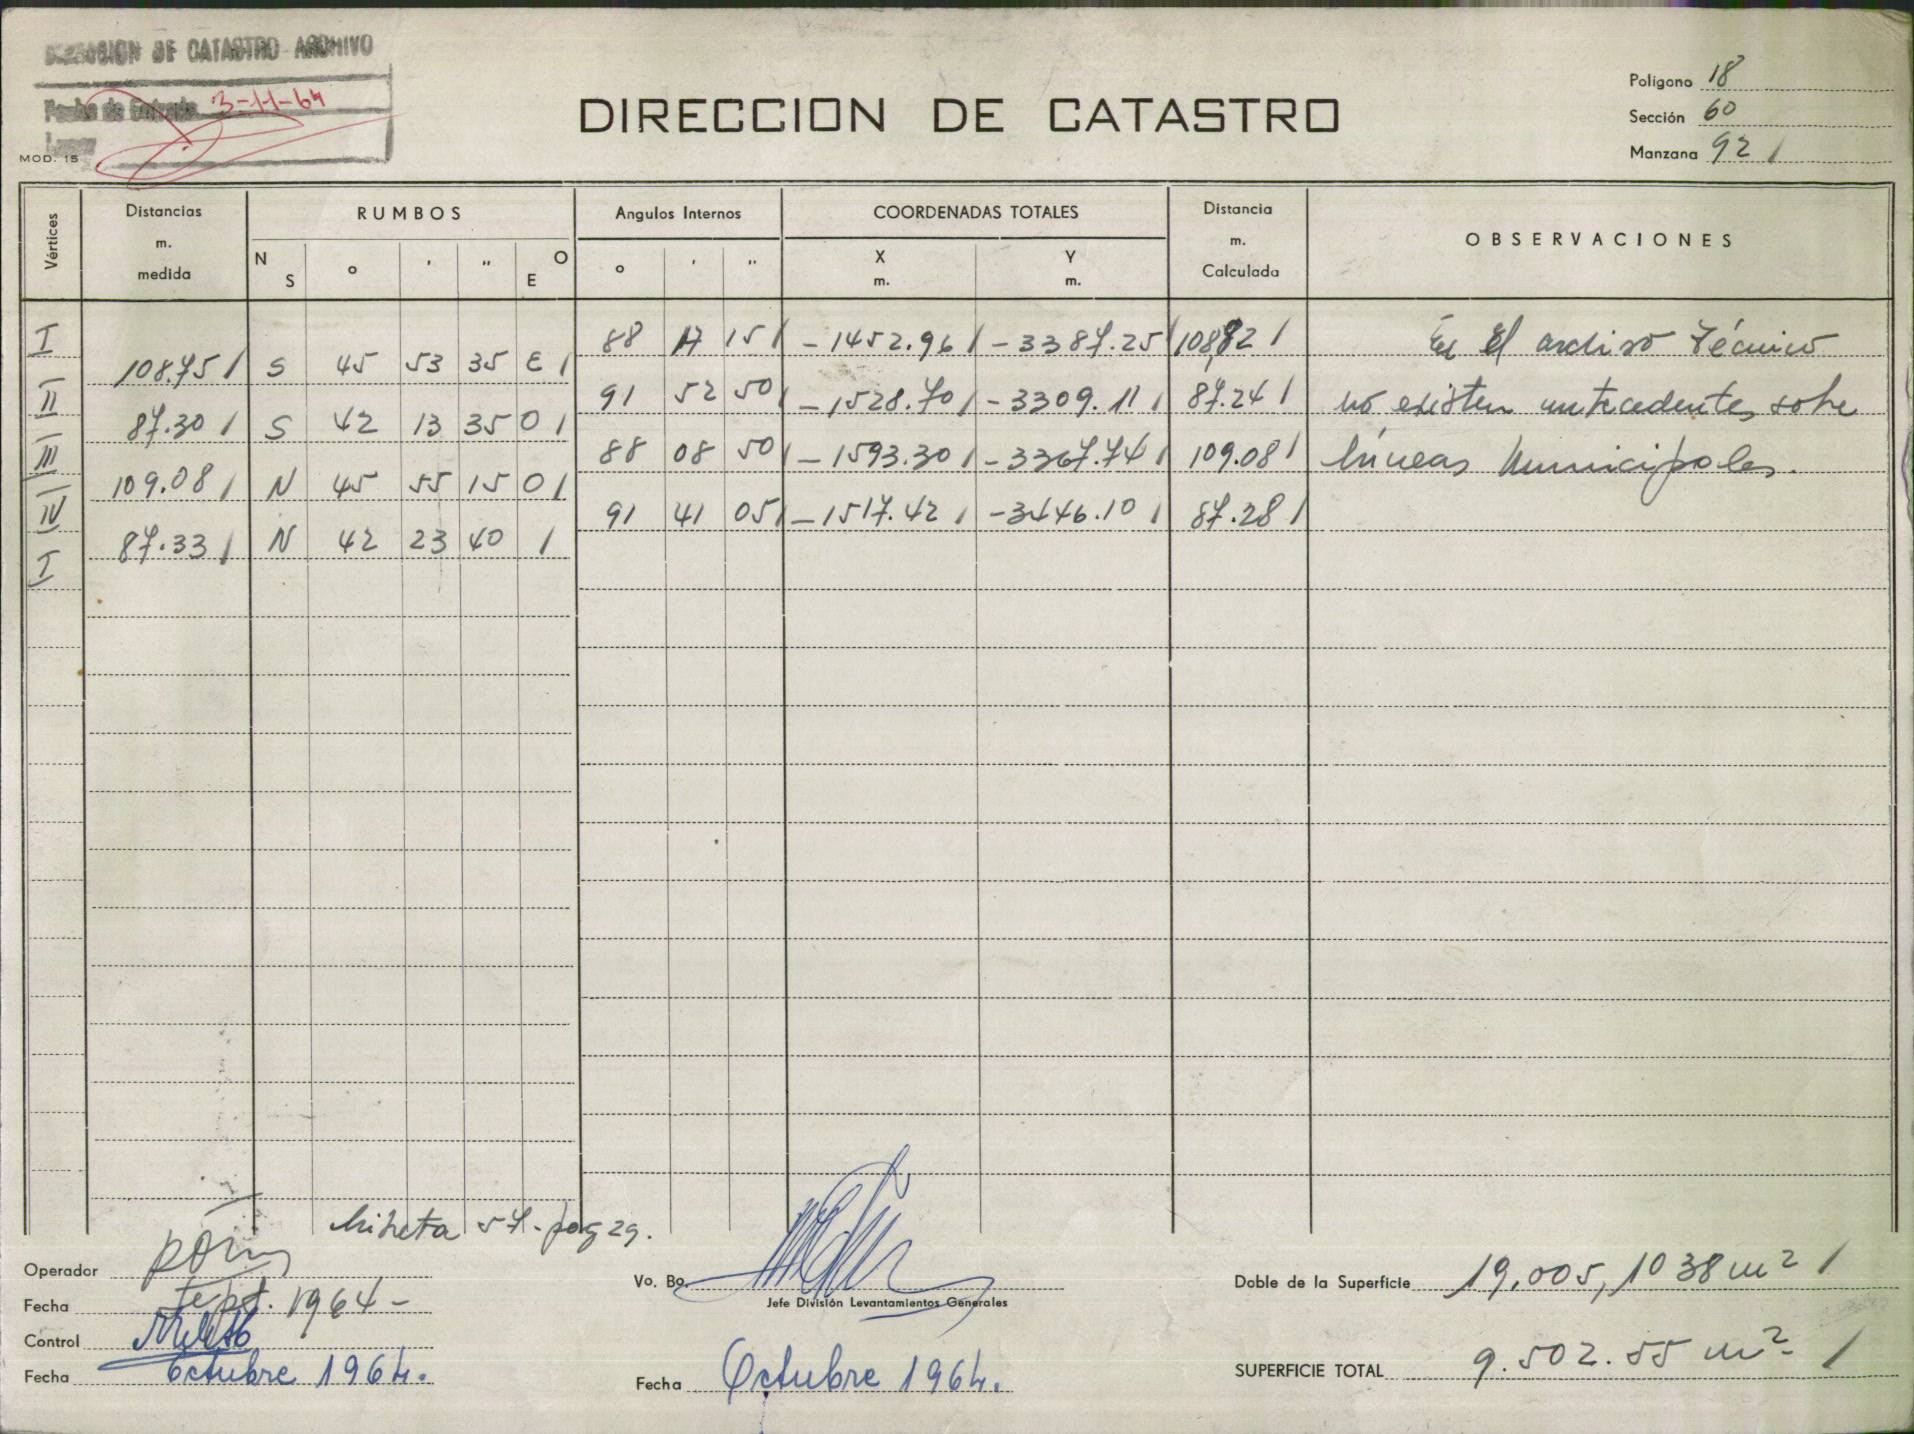 DIRECCION DE CATASTRO ARCHIVO
Fecha de Entrada 3-11-64
MOD. 15
DIRECCION DE CATASTRO
Polígono 18
Sección 60
Manzana 92 /
Vértices
Distancias m. medida
RUMBOS
N S o ' " O E
Angulos Internos
o ' "
COORDENADAS TOTALES
X m. Y m.
Distancia m. Calculada
OBSERVACIONES
I 88 17 15 / -1452.96 / -3387.25 / 108,82 / En el archivo técnico
108.75 / S 45 53 35 E /
II 91 52 50 / -1528.70 / -3309.11 / 87.24 / no existen antecedentes sobre
87.30 / S 42 13 35 O /
III 88 08 50 / -1593.30 / -3367.74 / 109.08 / líneas Municipales.
109.08 / N 45 55 15 O /
IV 91 41 05 / -1517.42 / -3446.10 / 87.28 /
87.33 / N 42 23 40 /
I
libreta 57-pag 29.
Operador
Fecha Sept. 1964-
Control
Fecha Octubre 1964.
Vo. Bo.
Jefe División Levantamientos Generales
Fecha Octubre 1964.
Doble de la Superficie 19.005,1038 m2 /
SUPERFICIE TOTAL 9.502.55 m2 /